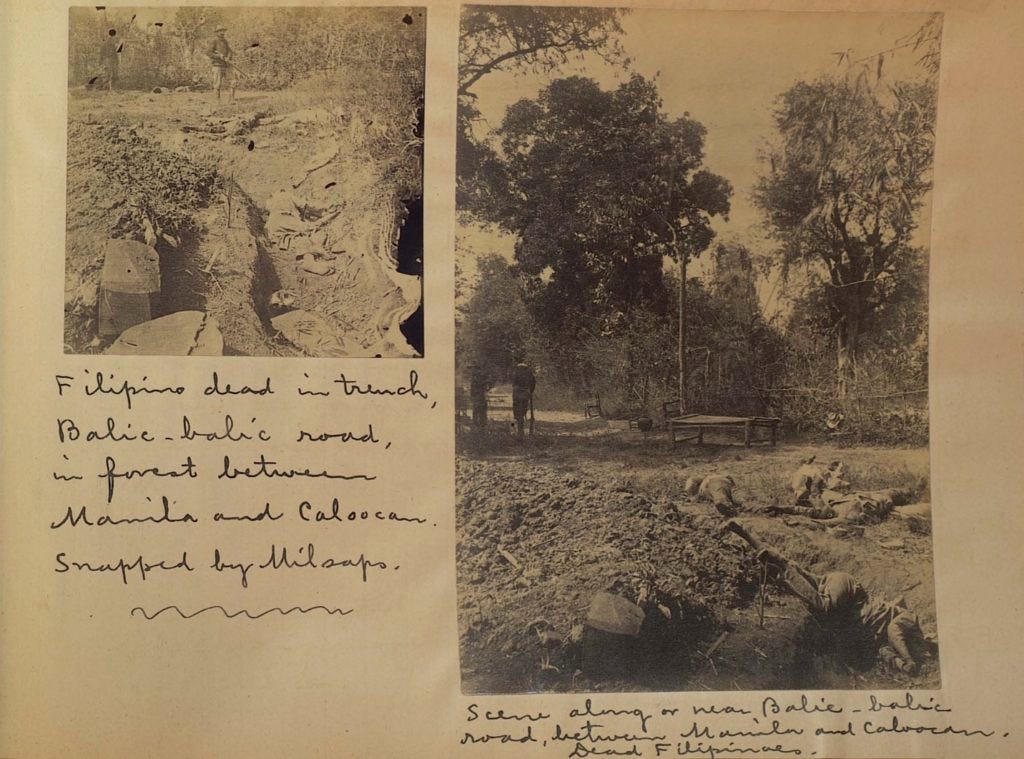 Filipino dead in trench,
Balic-balic road,
in forest between
Manila and Caloocan.
Snapped by Milsaps.
Scene along or near Balic-balic
road, between Manila and Caloocan.
Dead Filipinoes.